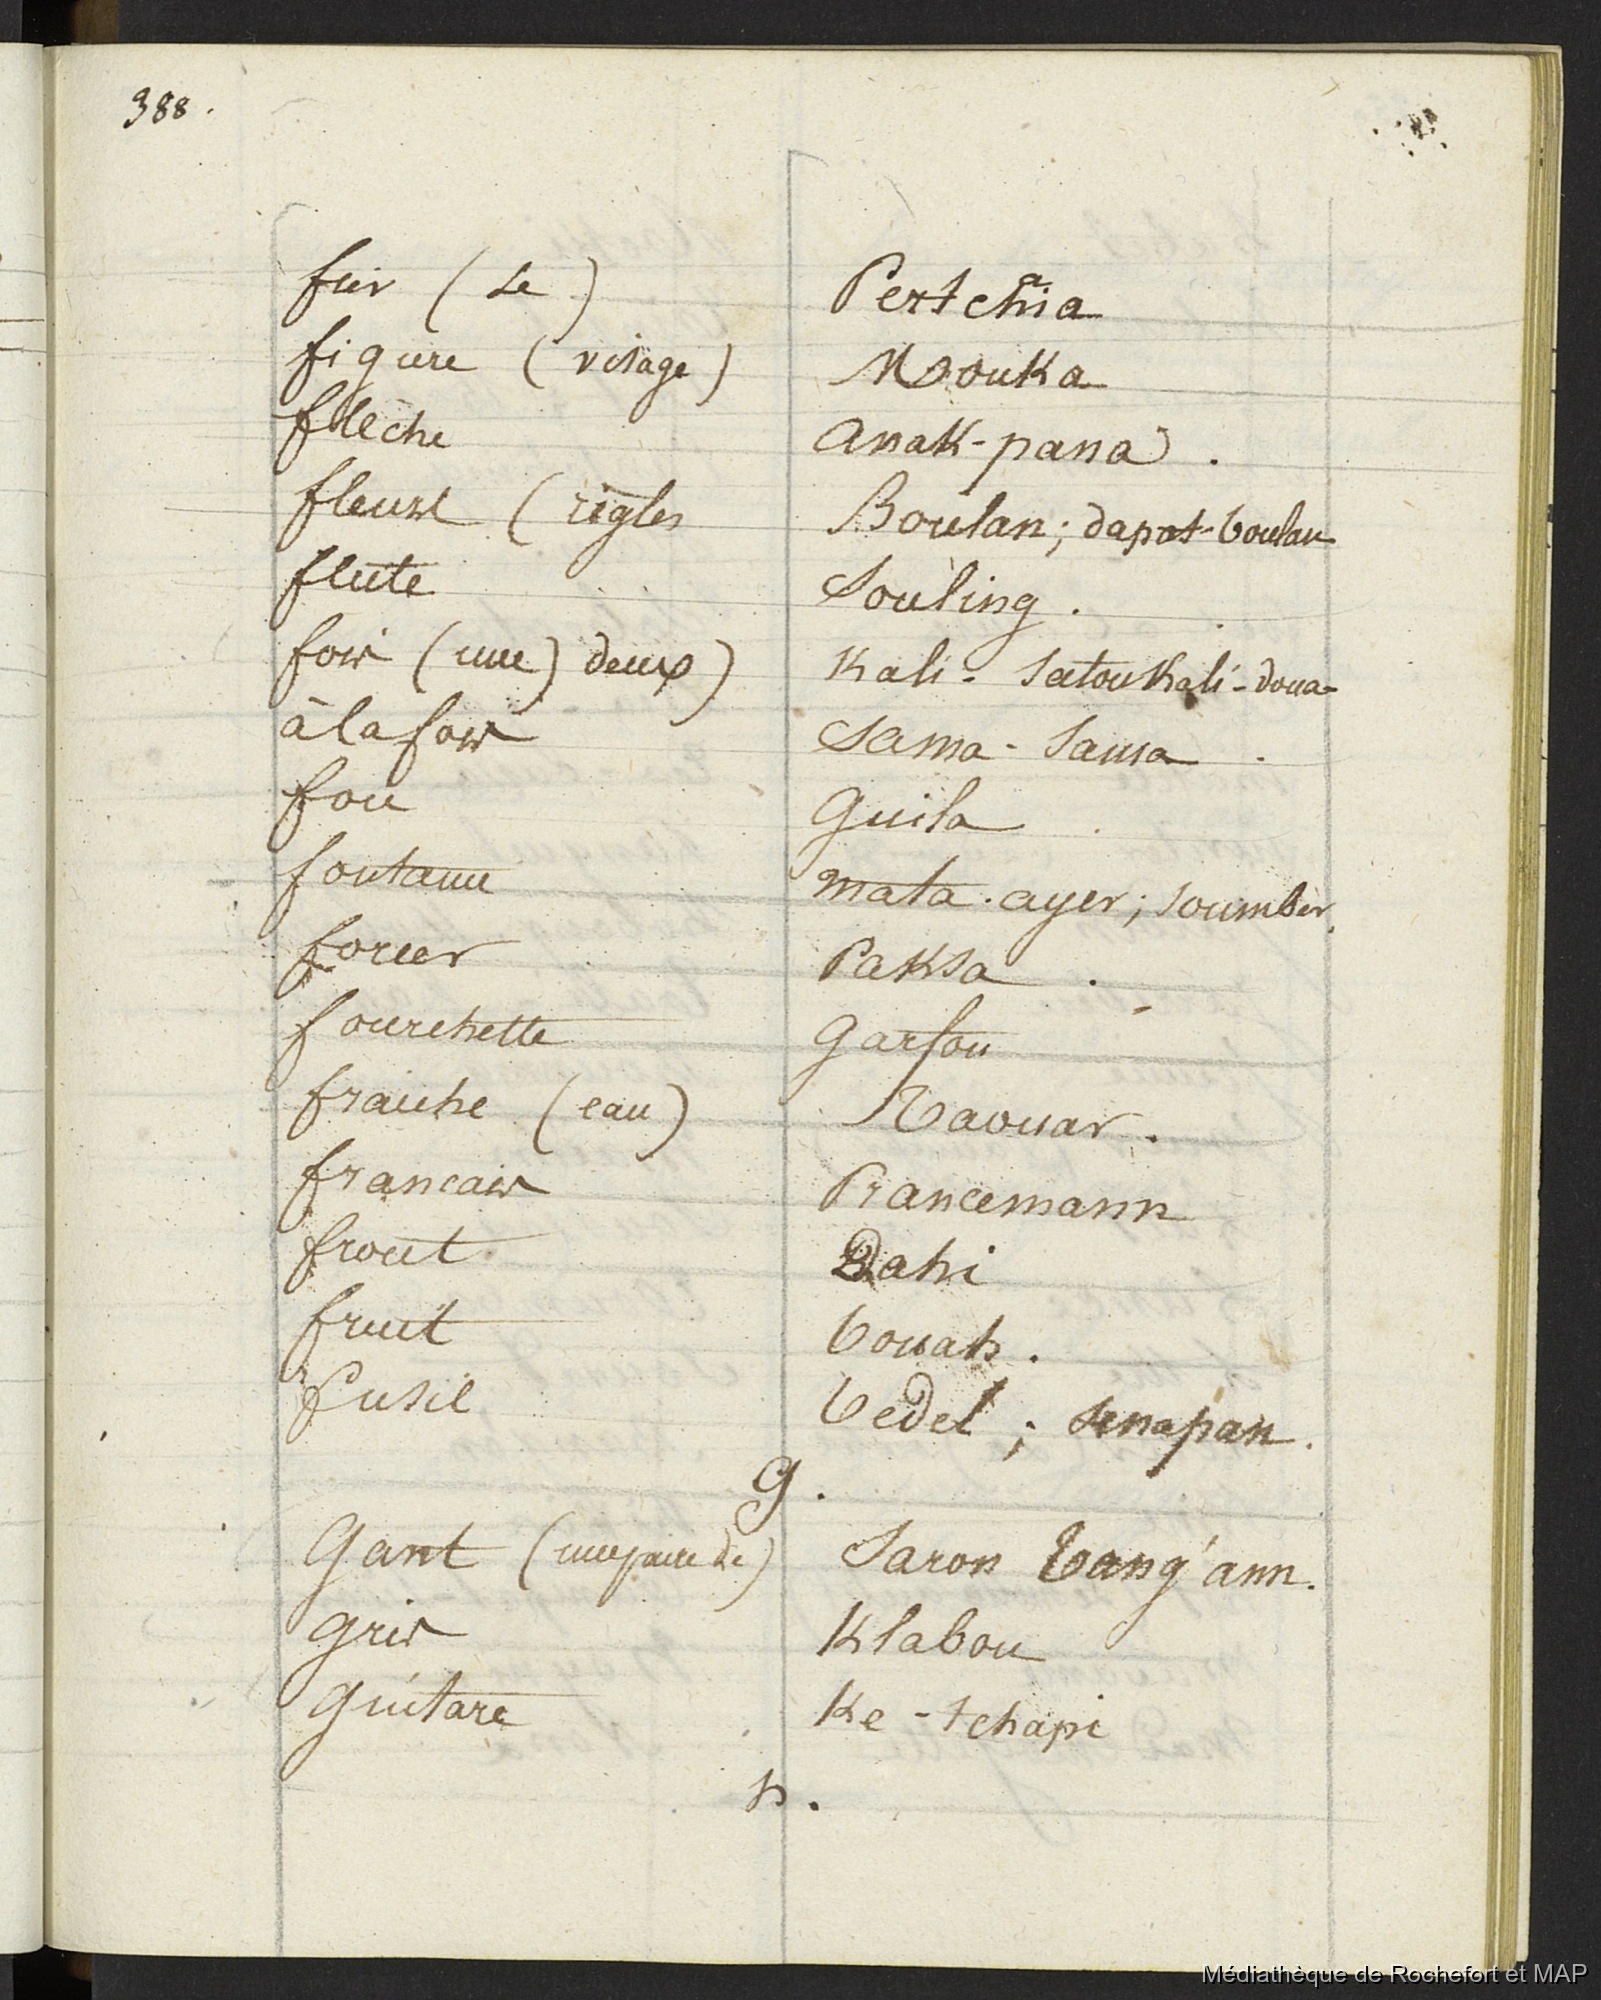 388.
fier (se) Pertchia
figure (visage) Mouka
flèche anak-pana.
fleurs (règles Boulan; dapat-boulan
flute Souling.
fois (une) deux) Kali- satoukali-doua-
à la fois Sama-Sama.
fou Guila.
fontaine mata-ayer; soumber.
forcer Paksa.
fourchette Garfou
fraiche (eau) Taouar.
francais Prancemann
front Dahi
fruit bouah.
Fusil bedel; senapan.
G.
Gant (une paire de) Saron tang'ann.
Gris Klabou
Guitare Ke-tchapi
h.
Médiathèque de Rochefort et MAP